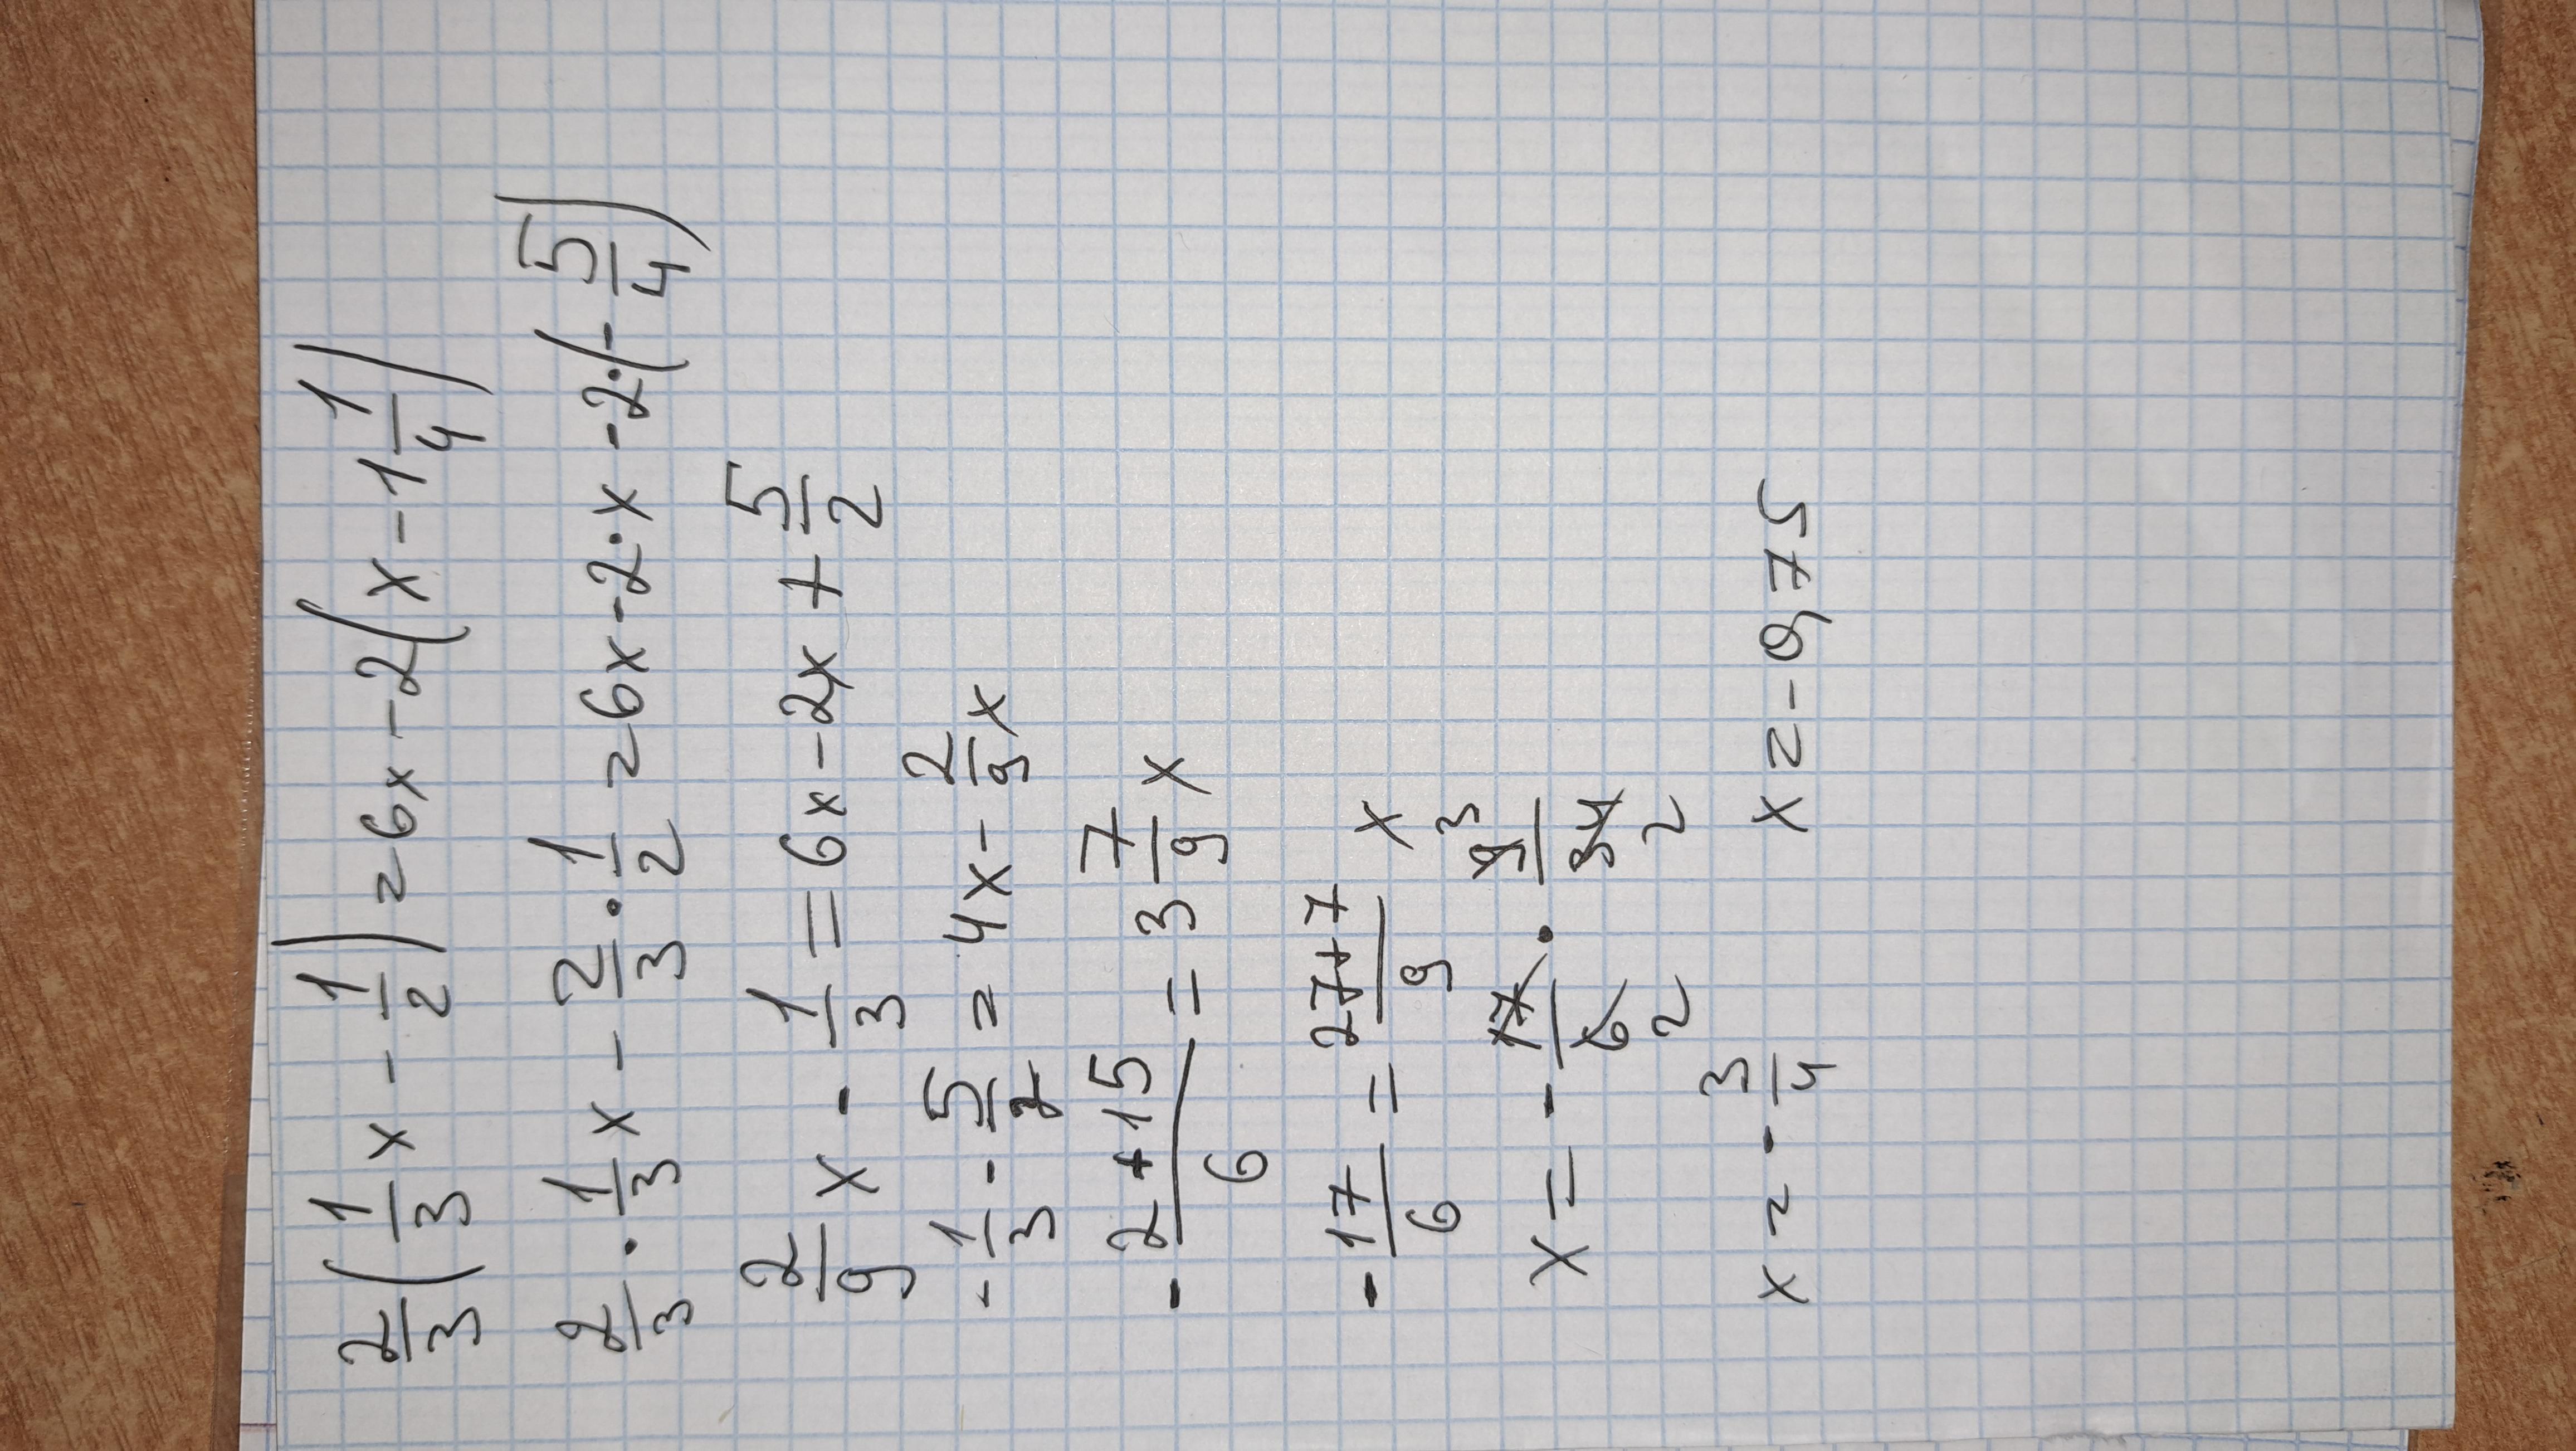 2/3(1/3x - 1/2) = 6x - 2(x - 1 1/4)
2/3 · 1/3x - 2/3 · 1/2 = 6x - 2·x - 2·(- 5/4)
2/9x - 1/3 = 6x - 2x + 5/2
- 1/3 - 5/2 = 4x - 2/9x
- (2+15)/6 = 3 7/9 x
- 17/6 = (27+7)/9 x
x = - 17/6 2 · 9 3/34 2
x = - 3/4 x = -0,75